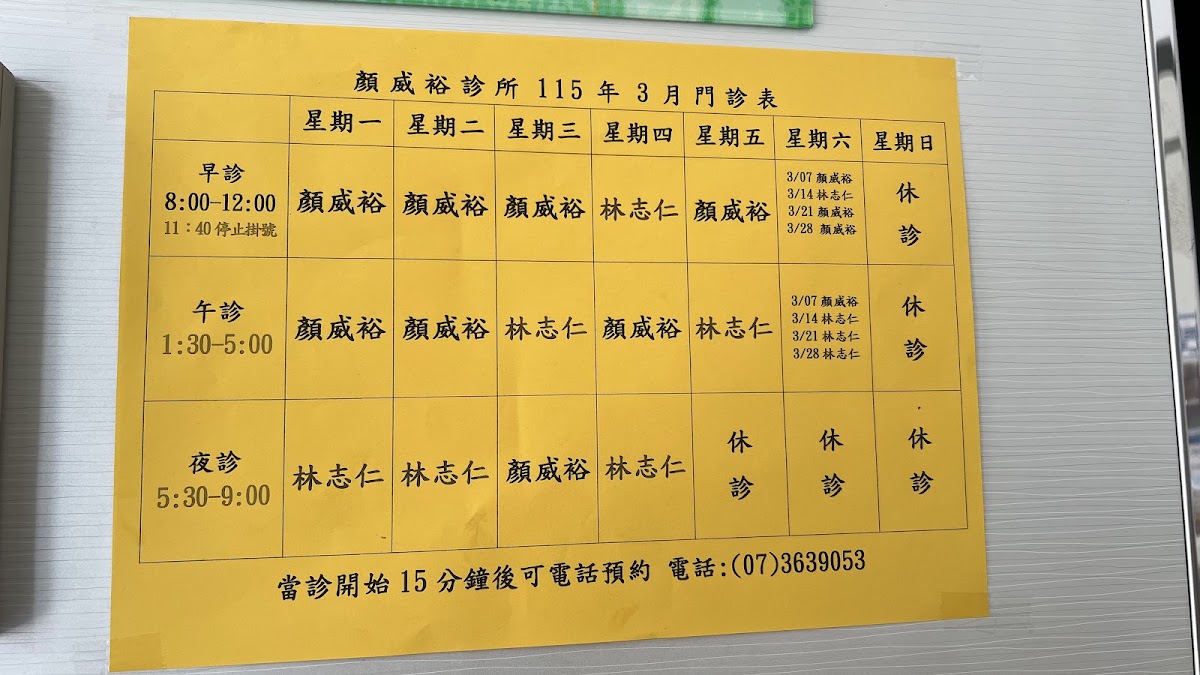 顏威裕診所 115 年 3 月門診表
星期一 星期二 星期三 星期四 星期五 星期六 星期日
早診
8:00-12:00
11：40 停止掛號
顏威裕 顏威裕 顏威裕 林志仁 顏威裕
3/07 顏威裕
3/14 林志仁
3/21 顏威裕
3/28 顏威裕
休
診
午診
1:30-5:00
顏威裕 顏威裕 林志仁 顏威裕 林志仁
3/07 顏威裕
3/14 林志仁
3/21 林志仁
3/28 林志仁
休
診
夜診
5:30-9:00
林志仁 林志仁 顏威裕 林志仁
休
診
休
診
休
診
當診開始 15 分鐘後可電話預約 電話:(07)3639053